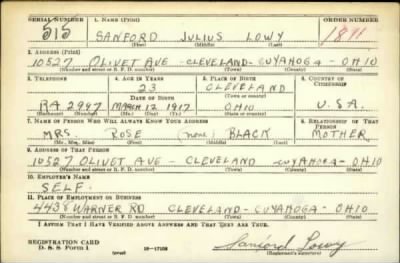 SERIAL NUMBER 1. NAME (Print) ORDER NUMBER
515 SANFORD JULIUS LOWY 1891
(First) (Middle) (Last)
2. ADDRESS (Print)
10527 OLIVET AVE - CLEVELAND - CUYAHOGA - OHIO
(Number and street or R. F. D. number) (Town) (County) (State)
3. TELEPHONE 4. AGE IN YEARS 5. PLACE OF BIRTH 6. COUNTRY OF CITIZENSHIP
23 CLEVELAND
DATE OF BIRTH (Town or county)
RA 2997 MARCH 12 1917 OHIO U.S.A.
(Exchange) (Number) (Mo.) (Day) (Yr.) (State or country)
7. NAME OF PERSON WHO WILL ALWAYS KNOW YOUR ADDRESS 8. RELATIONSHIP OF THAT PERSON
MRS. ROSE (none) BLACK MOTHER
(Mr., Mrs., Miss) (First) (Middle) (Last)
9. ADDRESS OF THAT PERSON
10527 OLIVET AVE - CLEVELAND CUYAHOGA - OHIO
(Number and street or R. F. D. number) (Town) (County) (State)
10. EMPLOYER'S NAME
SELF
11. PLACE OF EMPLOYMENT OR BUSINESS
4438 WARNER RD CLEVELAND - CUYAHOGA - OHIO
(Number and street or R. F. D. number) (Town) (County) (State)
I AFFIRM THAT I HAVE VERIFIED ABOVE ANSWERS AND THAT THEY ARE TRUE.
REGISTRATION CARD
D. S. S. Form 1 (over) 16-17105 Sanford Lowy
(Registrant's signature)